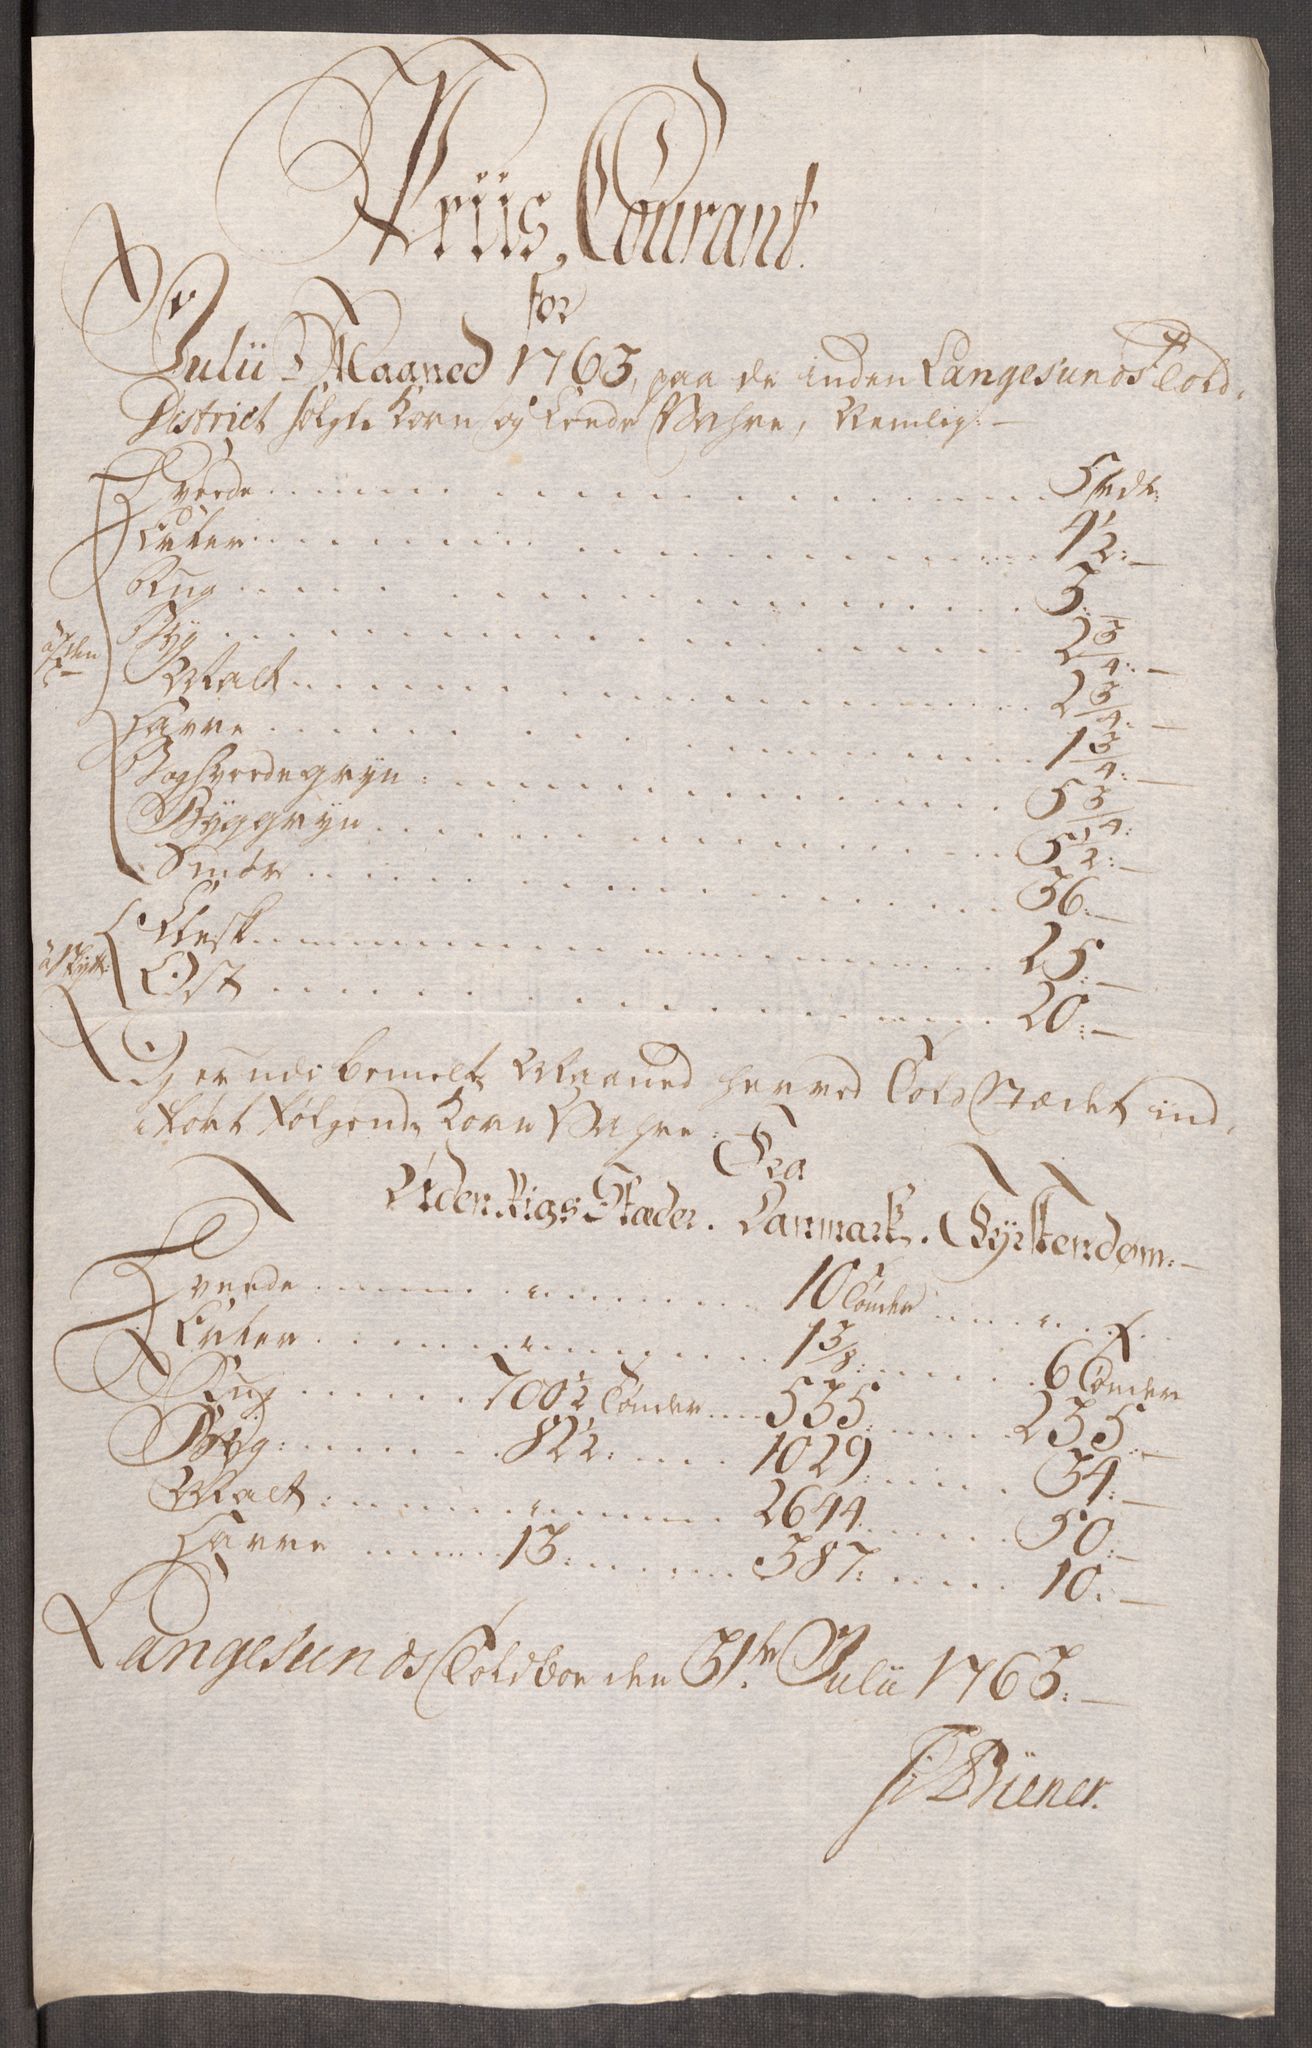 Priis, Courant.
for
Julii Maaned 1763, paa de inden Langesunds Told,
District solgte Korn og Fede Vahre, Nemlig: —
Hvede 5 rdr:
Erter 4½: —
Rug 3: —
à Tden
Byg 2¾: —
Malt 2¾: —
Havre 1¾: —
Boghvedegryn 5¾:
Byggryn 5½: —
Smør 36: —
à Sk℔:
Flesk 25: —
Ost 20: —
Og er udi bemelte Maaned her ved Toldstædet ind,
ført følgende Korn Vahre:
Fra
Uden Rigs Stæder. Danmark. Fyrstendom: —
Hvede " 10 Tønder "
Erter " 1⅜: 6 Tønder
Rug 700½ Tønder 535: 235: —
Byg: 82½: 1029: 34: —
Malt: " 2644 50: —
Havre 13: 387: 10: —
Langesunds Toldboe den 31te Julii 1763: —